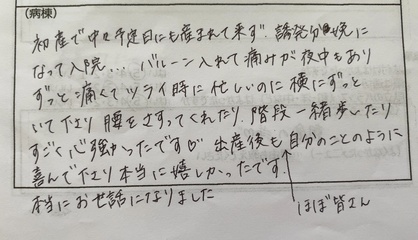 (病棟)
初産で中々予定日にも産まれて来ず、誘発分娩に
なって入院… バルーン入れて痛みが夜中もあり
ずっと痛くてツライ時に忙しいのに横にずっと
いて下さり腰をさすってくれたり、階段一緒歩いたり
すごく心強かったです♡ 出産後も自分のことのように
喜んで下さり本当に嬉しかったです。
本当にお世話になりました
ほぼ皆さん